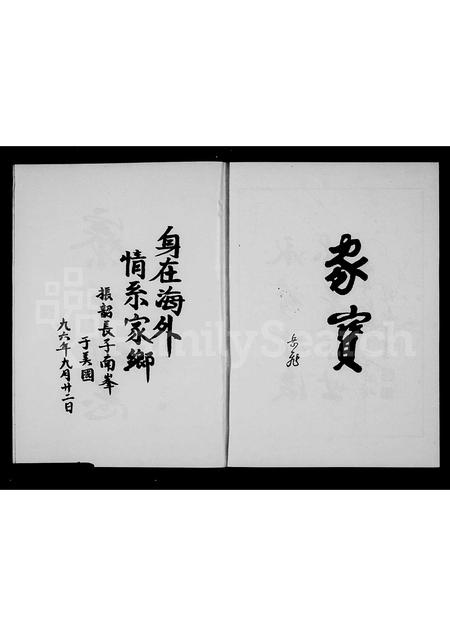 家寶
岳飛
身在海外
情系家鄉
振韶長子南峯
于美國
九六年九月廿二日
FamilySearch